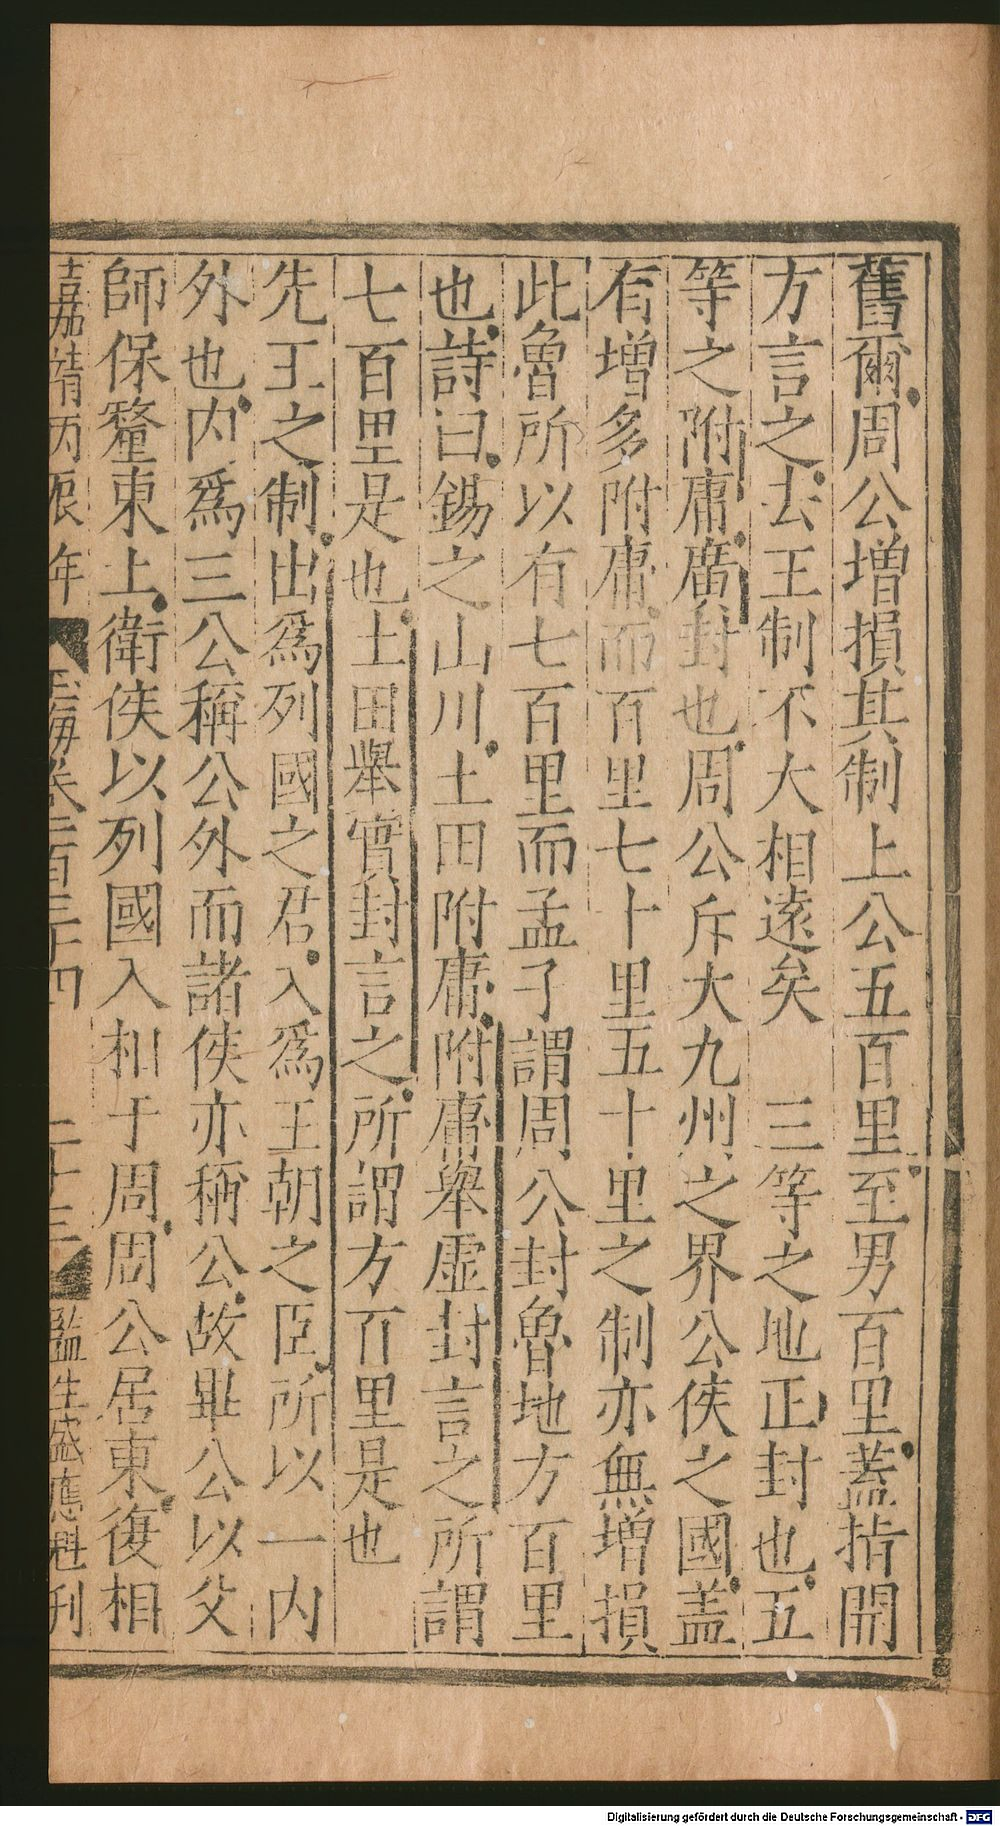 舊爾周公增損其制上公五百里至男百里蓋指開
方言之去王制不大相遠矣　三等之地正封也五
等之附庸廣封也周公斥大九州之界公侯之國蓋
有增多附庸而百里七十里五十里之制亦無增損
此魯所以有七百里而孟子謂周公封魯地方百里
也詩曰錫之山川土田附庸附庸舉虛封言之所謂
七百里是也土田舉實封言之所謂方百里是也
先王之制出爲列國之君入爲王朝之臣所以一內
外也內爲三公稱公外而諸侯亦稱公故畢公以父
師保釐東土衛侯以列國入相于周周公居東復相
嘉靖丙辰年　玉海卷一百三十四　二十三　監生盛應魁刊
Digitalisierung gefördert durch die Deutsche Forschungsgemeinschaft - DFG